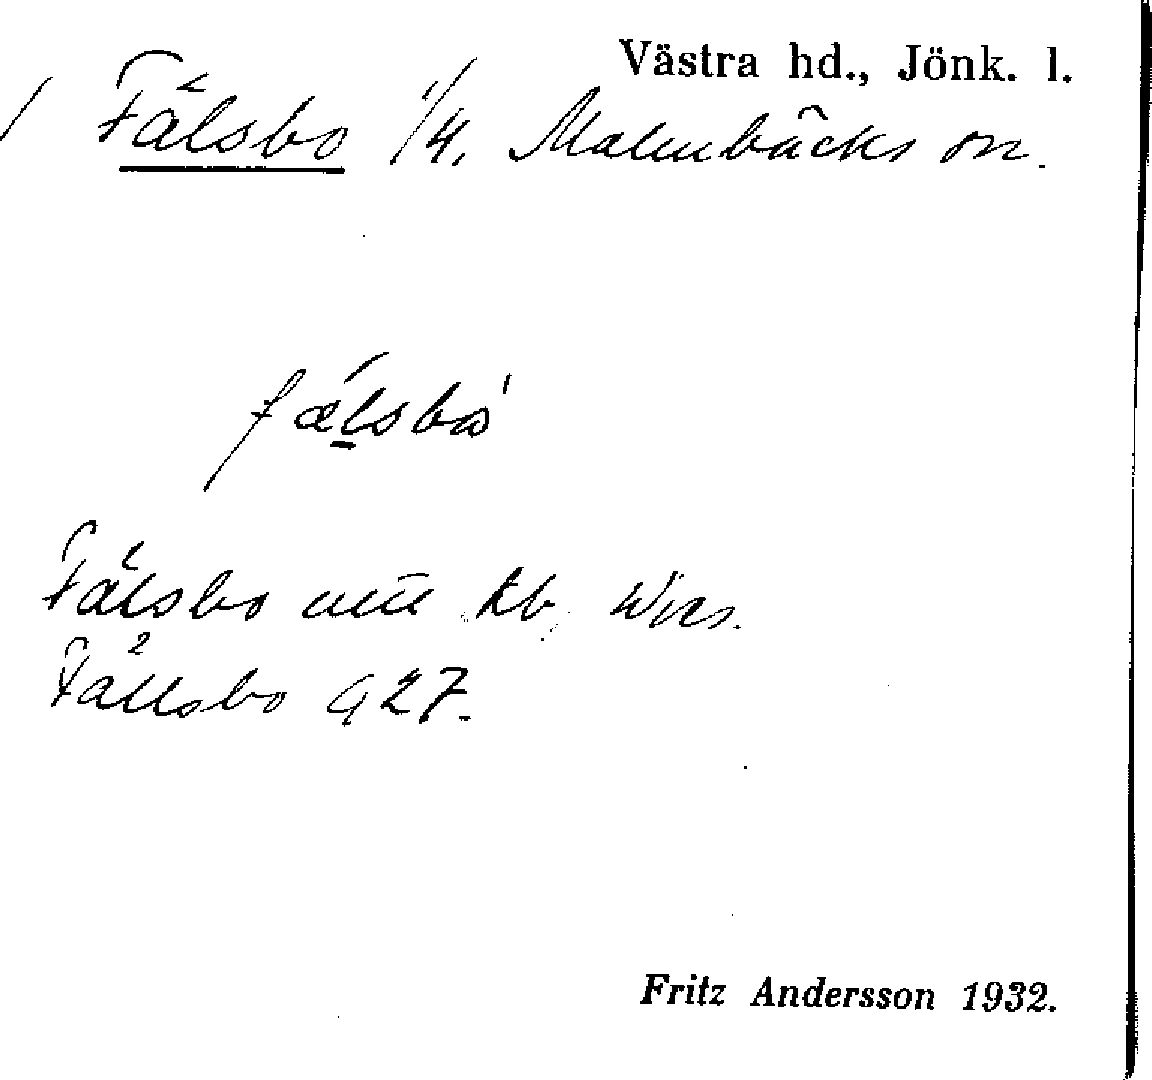 Västra hd., Jönk. l.
Fälsbo 1/4. Malmbäcks sn.
fälsbo
Fälsbo kb
Fällsbo G 27.
Fritz Andersson 1932.